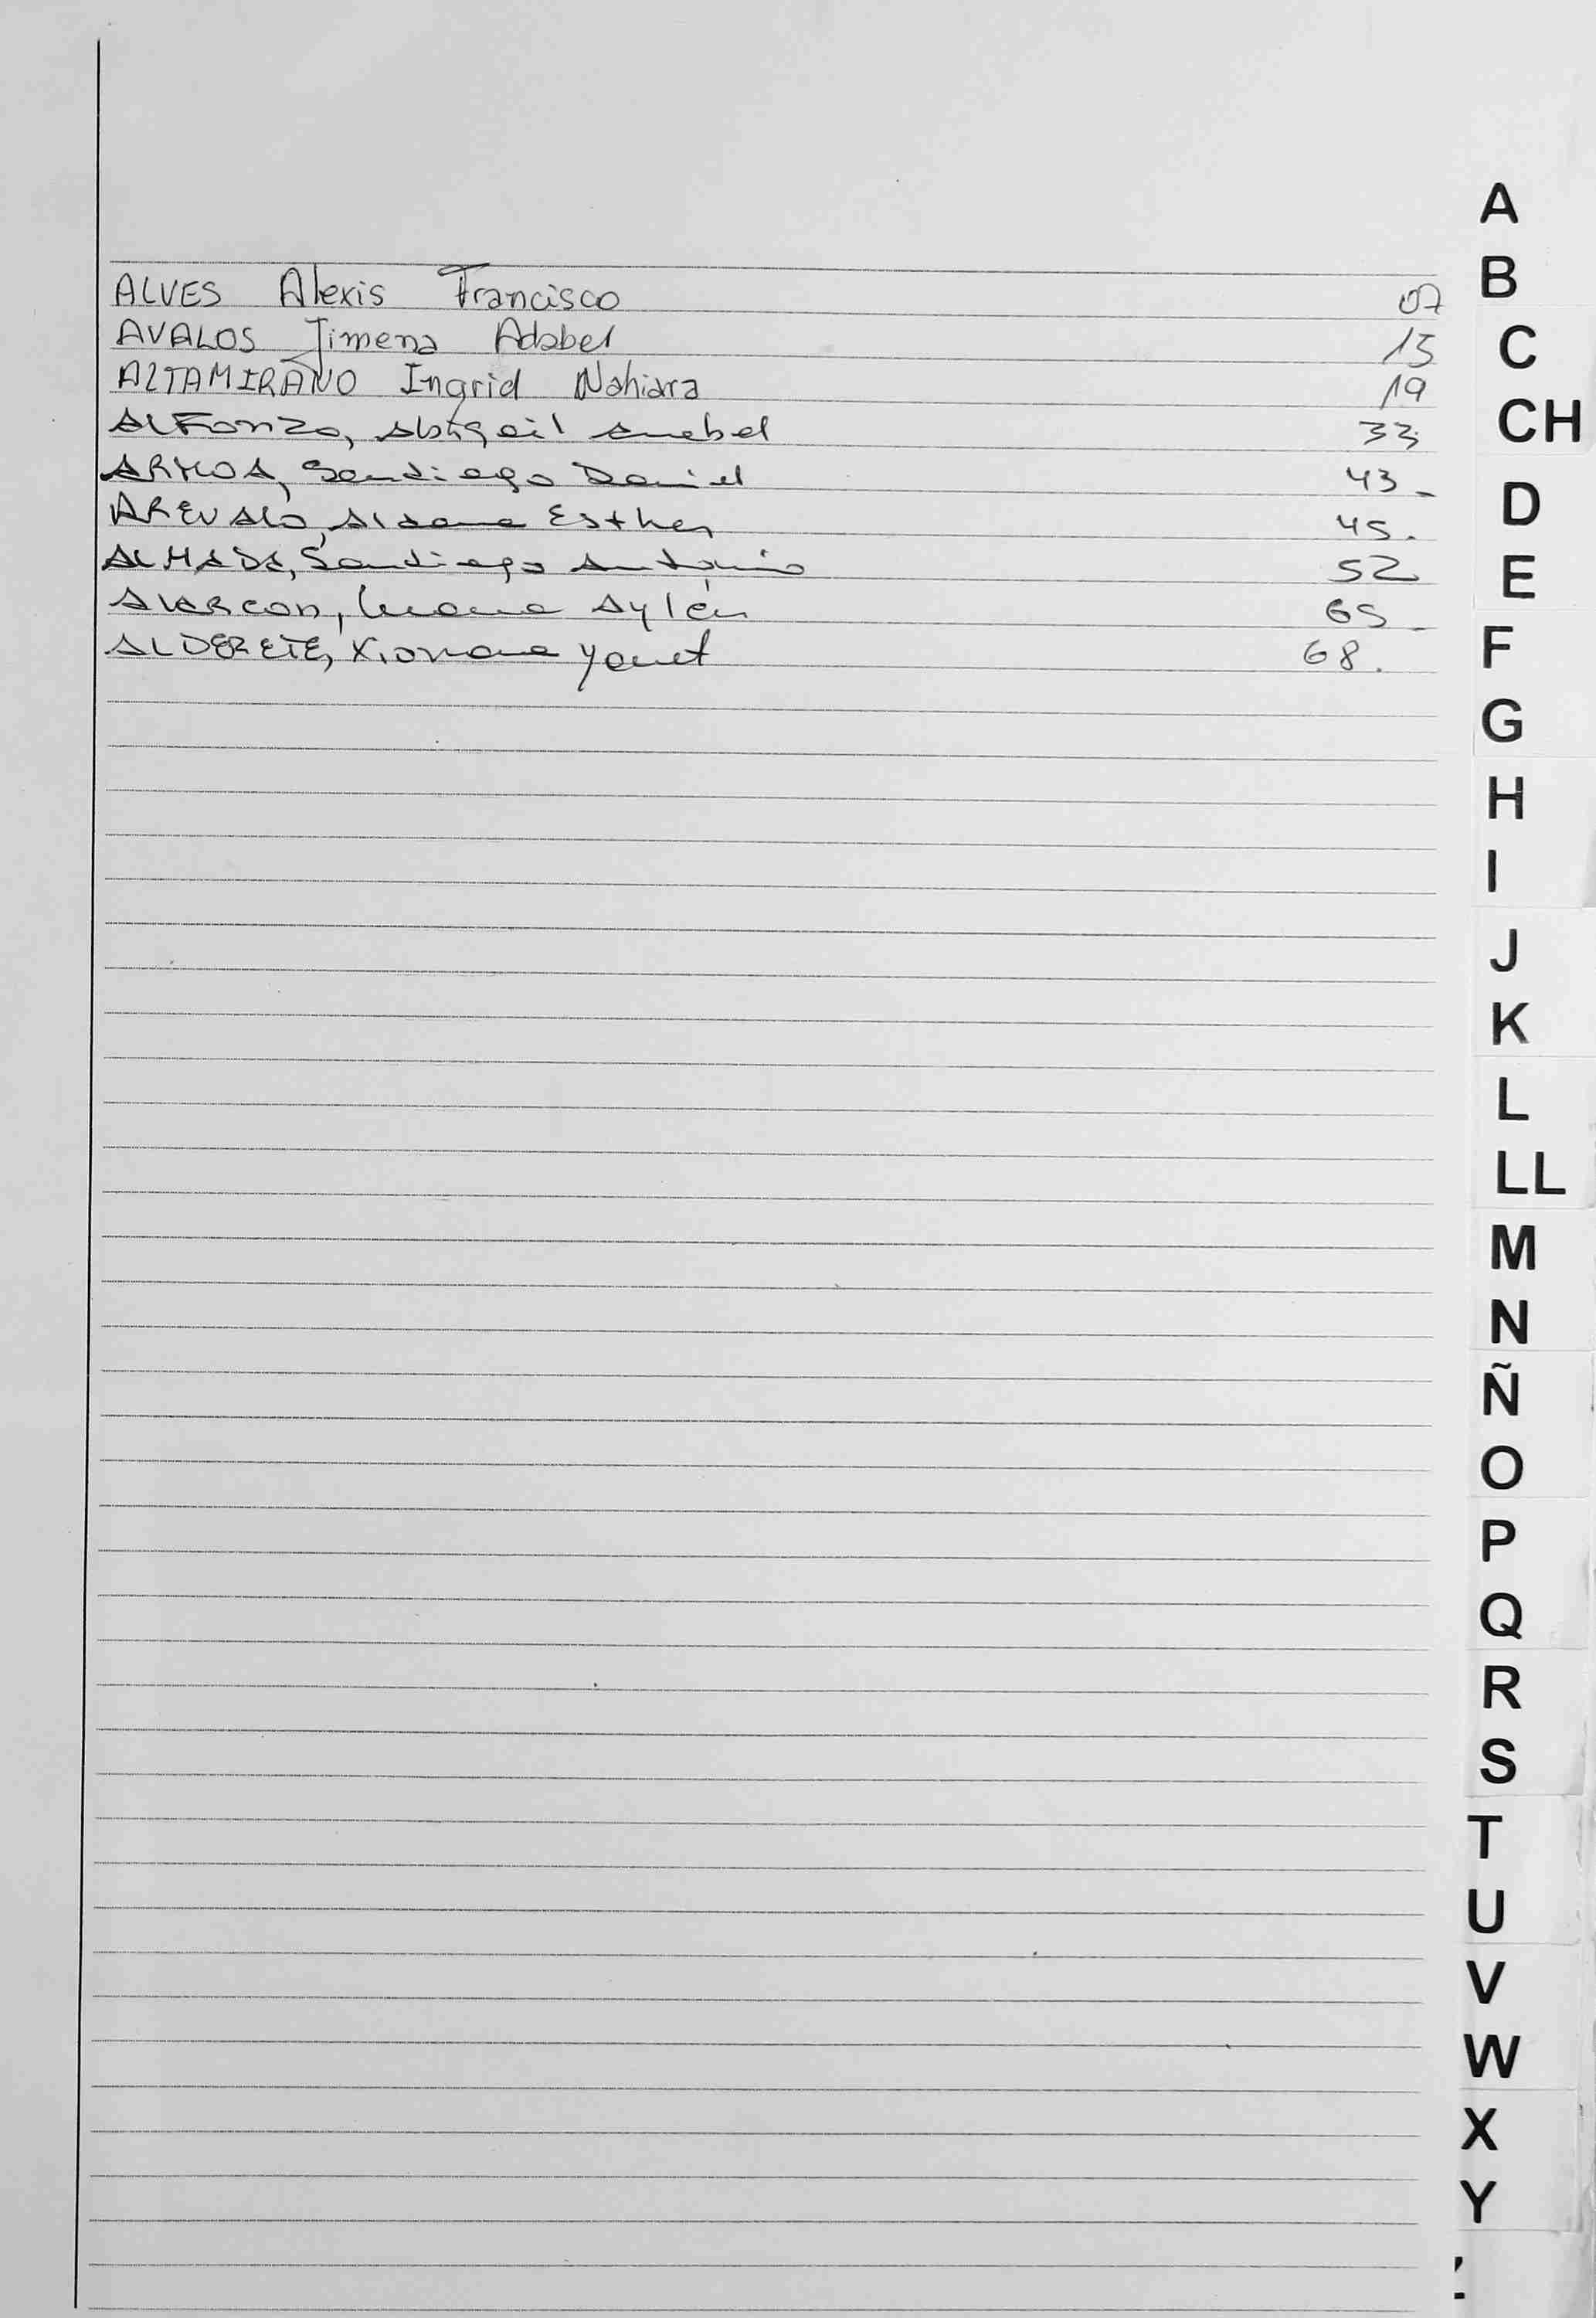 ALVES Alexis Francisco 07
AVALOS Jimena Adabel 15
ALTAMIRANO Ingrid Nahiara 19
ALFonzo, Abigail Anabel 33
ARMOA, Santiago Daniel 43-
AREVALO, Aldana Esther 45.
ALMADA, Santiago Antonio 52
ALARCON, Luana Aylén 65-
ALDERETE, Xiomara Yanet 68.
A
B
C
CH
D
E
F
G
H
I
J
K
L
LL
M
N
Ñ
O
P
Q
R
S
T
U
V
W
X
Y